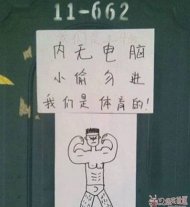 11-662
内无电脑
小偷勿进
我们是体育的!